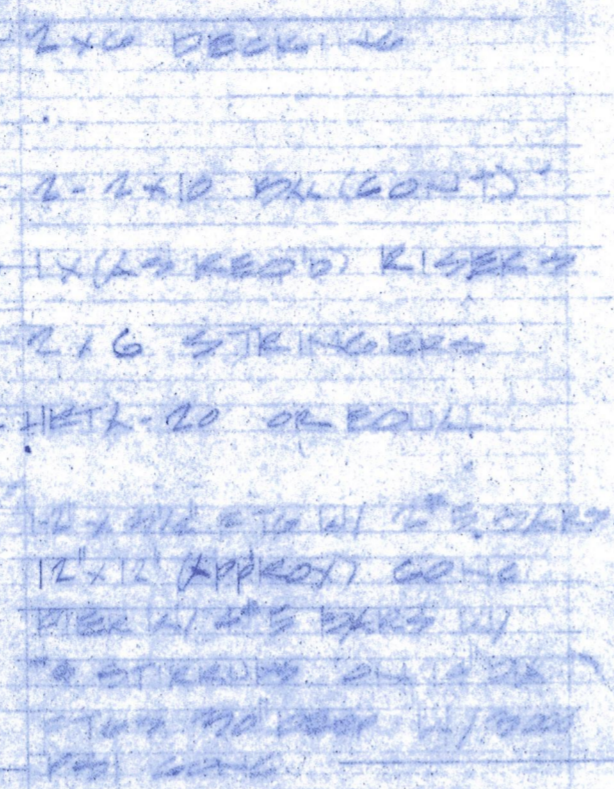 2x6 DECKING
2-2x10 BM (CONT)
1x(AS REQ'D) RISERS
2x6 STRINGERS
HETA-20 OR EQUAL
FTG W/ 2 #5 BARS
12"x12" (APPROX) CONC
PIER W/ #5 BARS W/
STIRRUPS ON
FTGS 30" DEEP W/
PSI CONC